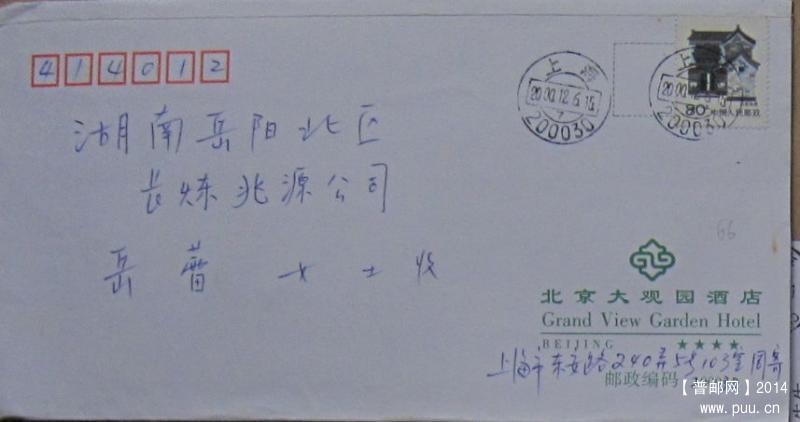 414012
上海
2000.12.6.15
200030
上海
2000.12.6.15
200030
80 中国人民邮政
湖南岳阳北区
长炼兆源公司
岳蕾 女士收
66
北京大观园酒店
Grand View Garden Hotel
BEIJING ★★★★
上海市东安路240弄5号103室周寄
邮政编码
【普邮网】2014
www.puu.cn